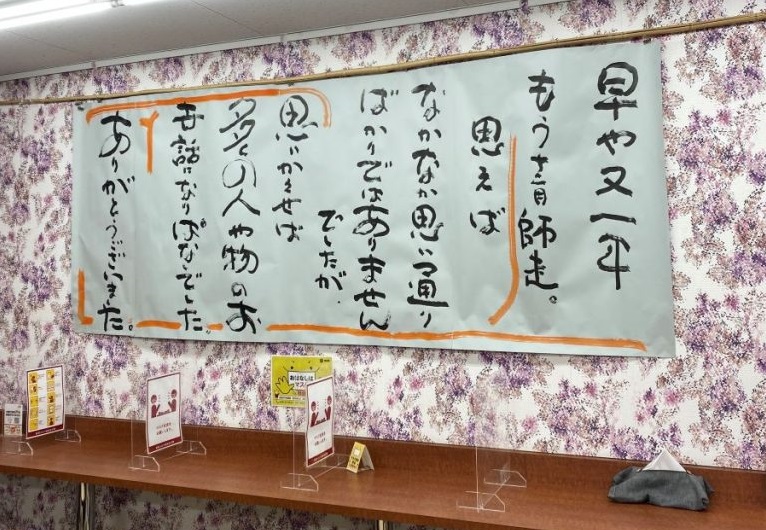 早や又一年
もう十二月師走。
思えば
なかなか思い通り
ばかりではありません
でしたが、
思いかえせば
多くの人や物のお
世話になりぱなしでした。
ありがとうございました。
おはなしは